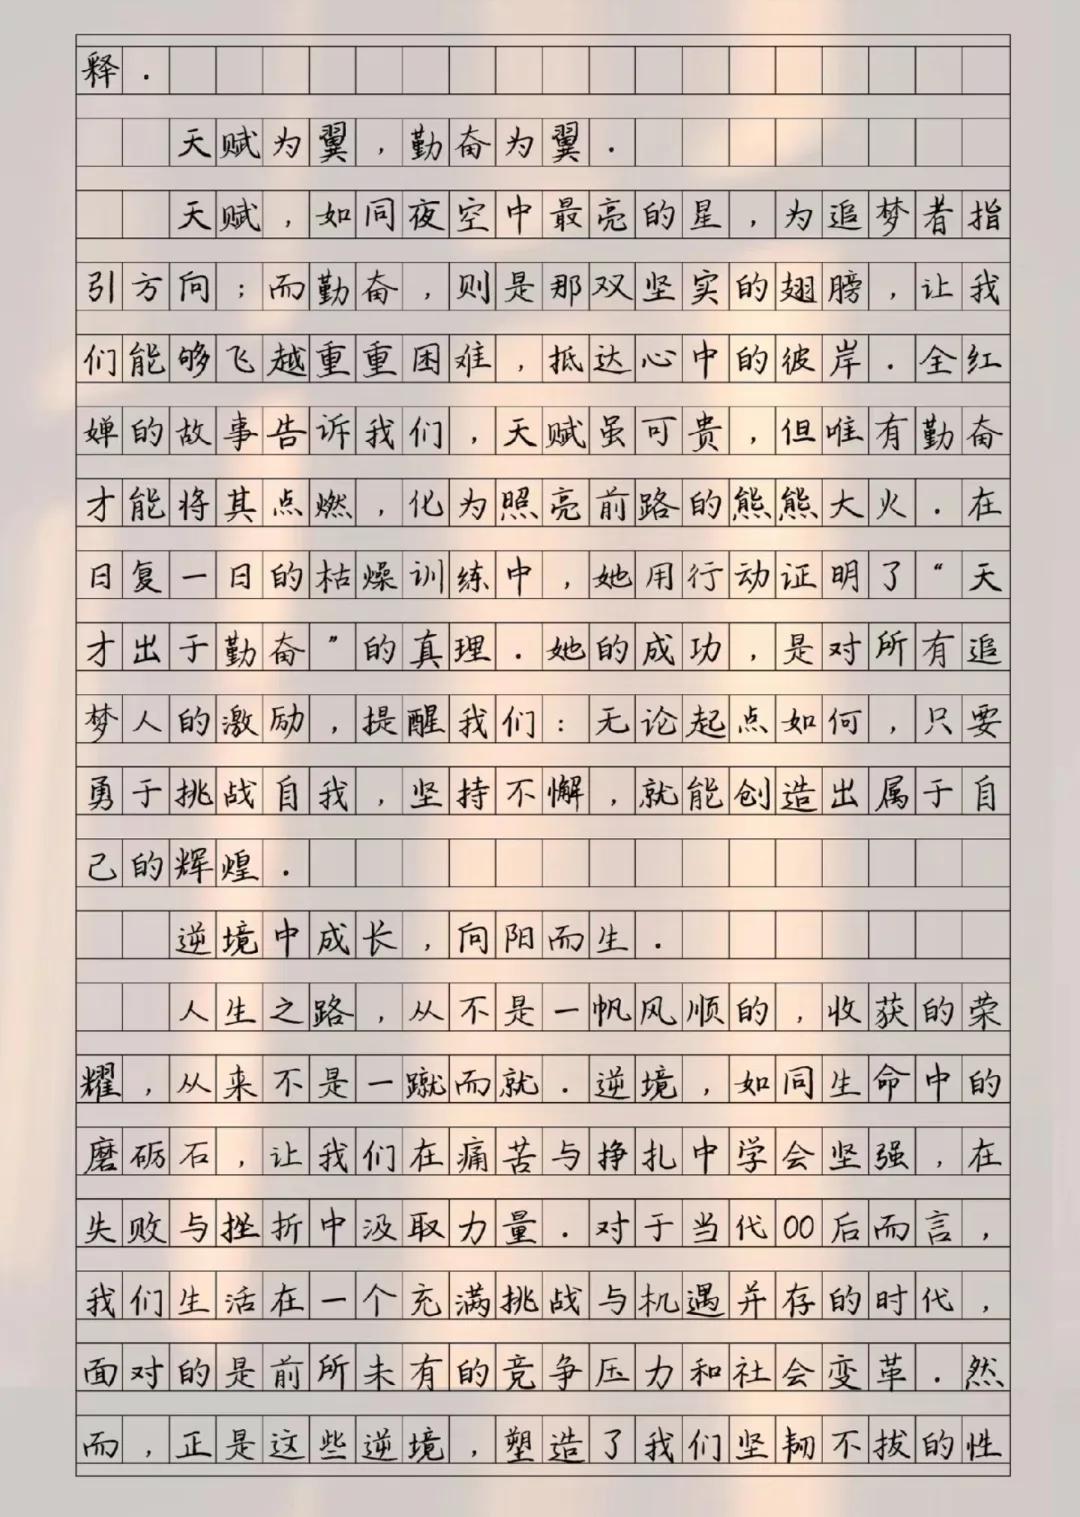 释.
天赋为翼,勤奋为翼.
天赋,如同夜空中最亮的星,为追梦者指
引方向;而勤奋,则是那双坚实的翅膀,让我
们能够飞越重重困难,抵达心中的彼岸.全红
婵的故事告诉我们,天赋虽可贵,但唯有勤奋
才能将其点燃,化为照亮前路的熊熊大火.在
日复一日的枯燥训练中,她用行动证明了“天
才出于勤奋”的真理.她的成功,是对所有追
梦人的激励,提醒我们:无论起点如何,只要
勇于挑战自我,坚持不懈,就能创造出属于自
己的辉煌.
逆境中成长,向阳而生.
人生之路,从不是一帆风顺的,收获的荣
耀,从来不是一蹴而就.逆境,如同生命中的
磨砺石,让我们在痛苦与挣扎中学会坚强,在
失败与挫折中汲取力量.对于当代00后而言,
我们生活在一个充满挑战与机遇并存的时代,
面对的是前所未有的竞争压力和社会变革.然
而,正是这些逆境,塑造了我们坚韧不拔的性